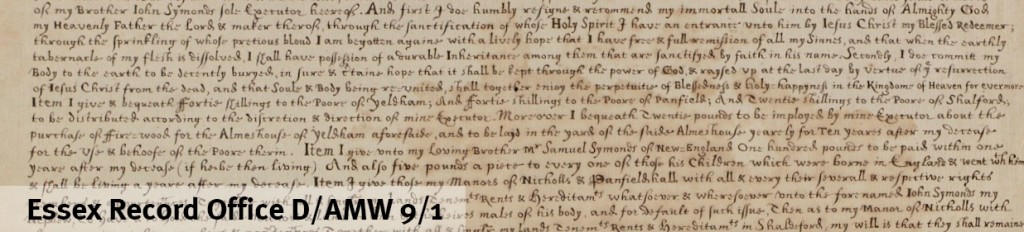 of my Brother John Symonds sole Executor heerof. And first I doe humbly resigne & recommend my immortall Soule into the hands of Almighty God
my Heavenly Father the Lord & maker therof, through the sanctification of whose Holy Spirit I have an entrance vnto him by Iesus Christ my Blessed Redeemer;
through the sprinkling of whose pretious bloud I am begotten againe with a lively hope that I have free & full remission of all my sinnes, and that when the earthly
tabernacle of my flesh is dissolved, I shall have possession of a durable Inheritance among them that are sanctifyed by faith in his name. Secondly, I doe committ my
Body to the earth to be decently buryed, in sure & certaine hope that it shall be kept through the power of God, & raysed up at the last day by vertue of ye resurrection
of Iesus Christ from the dead, and that Soule & Body being re-vnited, shall together enjoy the perpetuitie of Blessedness & Holy happyness in the Kingdome of Heaven for evermore
Item I give & bequeath ffortie shillings to the Poore of Yeldham; And ffortie shillings to the Poore of Panfield; And Twentie shillings to the Poore of Shalford;
to be distributed according to the discretion & direction of mine Executor. Moreover I bequeath Twentie pounds to be imployed by mine Executor about the
purchase of ffire-wood for the Almeshouse of Yeldham aforesaide, and to be layd in the yard of the saide Almeshouse yearely for Ten yeares after my decease
for the Vse & behoofe of the Poore therin. Item I give vnto my Loving Brother Mr Samuel Symonds of New-England One hundred pounds to be paid within one
yeare after my decease (if he be then living) And also five pounds a piece to every one of those his Children which were borne in England & went with him
& shall be living a yeare after my decease. Item I give those my Manors of Nicholls & Panfieldhall with all & every their severall & respective rights
Rents & Hereditamts whatsoever & wheresoever vnto the forenamed John Symonds my
heires males of his body, and for default of such issue, Then as to my Manor of Nicholls with
Together with all & my lands Tenemts Rents & Hereditamts in Shaldeford, my will is that they shall remaine
Essex Record Office D/AMW 9/1